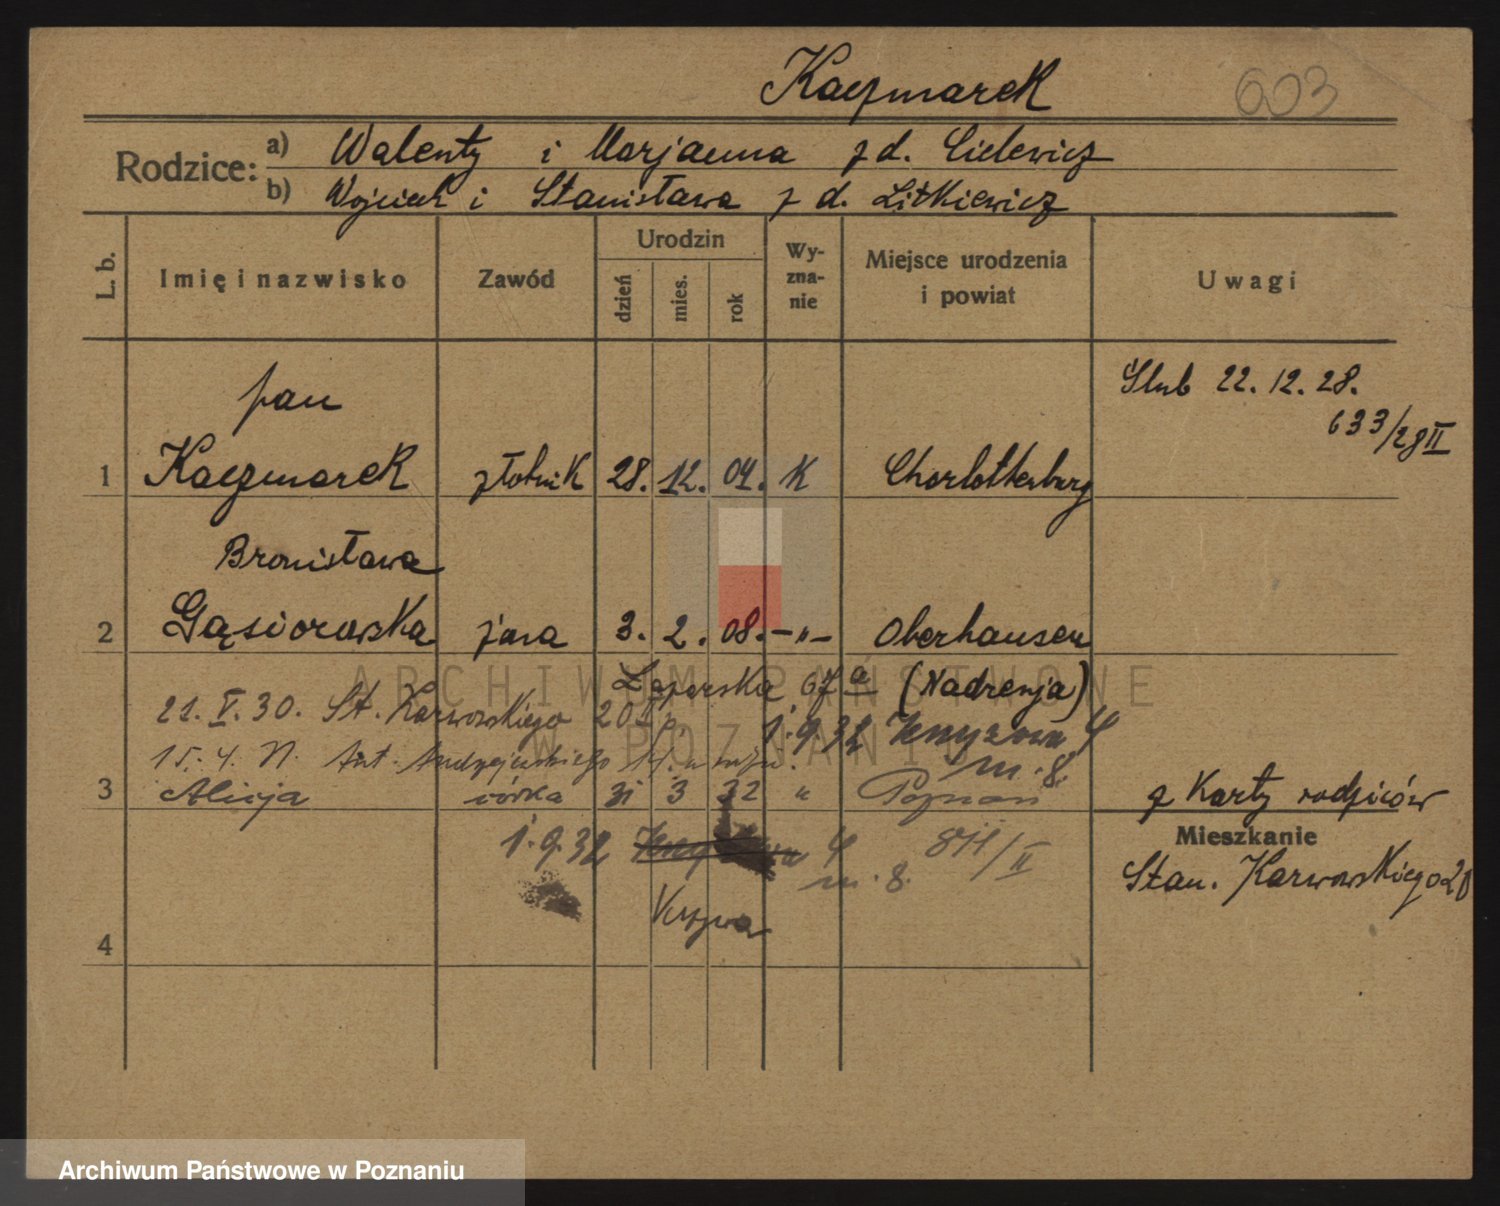 Kaczmarek 603
Rodzice: a) Walenty i Marjanna z d. Cielewicz
b) Wojciech i Stanisława z d. Litkiewicz
L. b. Imię i nazwisko Zawód Urodzin dzień mies. rok Wyznanie Miejsce urodzenia i powiat Uwagi
Ślub 22. 12. 28.
633/28 II
Jan
1 Kaczmarek złotnik 28. 12. 04. K Charlottenburg
Bronisława
2 Gąsiorowska żona 3. 2. 08. -"- Oberhausen
67 a (Nadrenja)
21. V. 30. St. Karwowskiego 20
1. 9. 32 4
15. 4. Ant. Andrzejewskiego
m. 8.
3 Alicja córka 31 3 32 " Poznań z Karty rodziców
Mieszkanie
1. 9. 32 4 811/II
m. 8. Stan. Karwowskiego 20
4
ARCHIWUM PAŃSTWOWE
W POZNANIU
Archiwum Państwowe w Poznaniu